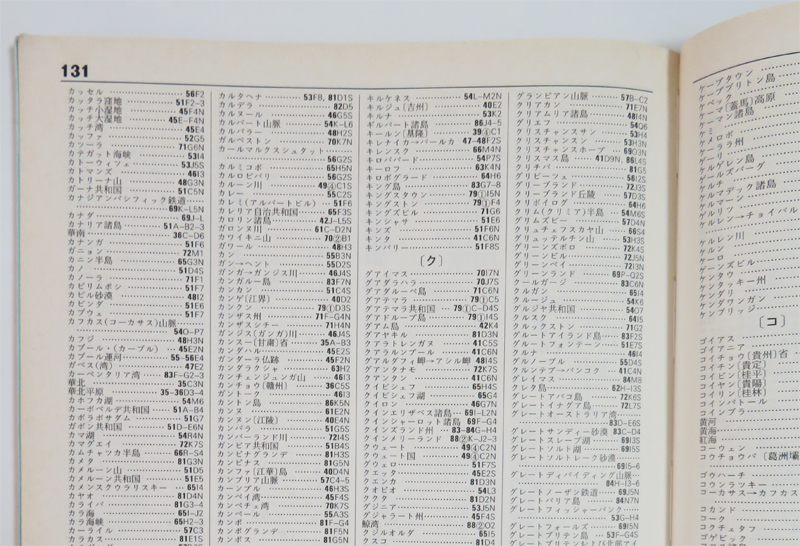 131
カッセル 56F2
カッタラ窪地 51F2-3
カッチ小湿地 45F4N
カッチ大湿地 45E-F4N
カッチ湾 45E4
カッファ 52G5
カツーラ 71G6N
カテガット海峡 53I4
カトーウィフェ 53J5S
カトマンズ 46I3
カトリーナ山 48G3N
ガーナ共和国 51C5N
カナジアンパシフィック鉄道
69K-L5N
カナダ 69J-L
カナリア諸島 51A-B2-3
華南 36C-D6
カナンガ 51F6
ガニョン 72M1
カニン半島 65G3N
カノ 51D4S
カノーラ 71F1
カピリムポシ 51F7
カビル砂漠 48I2
カビンダ 51E6
カプウェ 51F7
カフカス(コーカサス)山脈
54O-P7
カフジ 48H3N
カブール・(カーブル) 45E2N
カブール運河 55-56E4
ガベス(湾) 47E2
カーペンタリア湾 83F-G2-3
華北 35C3N
華北平原 35-36D3-4
カホフカ湖 54M6
カーボベルデ共和国 51A-B4
カボラボサダム 51G7
ガボン共和国 51D-E6N
カマ湖 54R4N
カマグエイ 72K7S
カムチャツカ半島 66R-S4
カメタ 81G3N
カメルーン山 51D5
カメルーン共和国 51E5
カメンスクウラリスキー 65I4
カヤオ 81D4N
カライバ 81G3-4
カラ海 65I-J2
カラ海峡 65H2-3
カーライル 57C3
カラカス 81E1S
カルタヘナ 53F8, 81D1S
カルデラ 82D5
カルヌール 46G5S
カルパート山脈 54K-L6
カルバラー 48H2S
ガルベストン 70K7N
カールマルクスシュタット
56G2S
カルミコボ 65H5N
カルロビバリ 56G2S
カルーン川 49④C1S
カレー 55C2S
カレミ(アルバートビル) 51F6
カレリア自治共和国 65F3S
カロリン諸島 42J-L5S
ガロンヌ川 61C-D2N
カワイキニ山 70②B1
ガワール 48H3
カン 55B3N
ガン→ヘント 55D2S
ガンガ→ガンジス川 46J4S
カンガルー島 83F7N
カンタラ 51C4S
カンゲ[江界] 40D2
カンクン 79①D3S
カンザス州 71F-G4N
カンザスシチー 71H4N
ガンジス(ガンガ)川 46J4S
カンスー(甘粛)省 35A-B3
カンダハル 45E2S
ガンダーラ仏跡 45F2N
カンダラクシャ 63H2
カンチェンジュンガ山 46I3
カンチョウ(贛州) 36C5S
ガントーク 46I3
カントン島 86K5N
カンヌ 61E2N
カンヌン[江陵] 40E4N
カンパラ 51G5S
カンバーランド川 72I4S
カンボジア共和国 81B4S
カンピナグランデ 81H3S
カンピナス 81G5N
カンファ[江華]島 40D4N
カンブリア山脈 57C4-5
カーンプル 46H3S
カンベイ湾 45F4S
カンペチェ湾 70K7S
カンペール 55A3S
カンポ 81F-G4
カンポグランデ 81F5N
カンポス 81G5N
キルケネス 54L-M2N
キルジュ[吉州] 40E2
キルナ 53K2
ギルバート諸島 86J4-5
キールン[基隆] 39④C1
キレナイカ→バールカ 47-48F2S
キレンスク 66M4N
キロババード 54P7S
キーロフ 63K4N
キロボグラード 64H6
キング島 83G7-8
キングスタウン 79①I5N
キングストン 79①F4
キングズビル 71G6
キンシャサ 51E6
キンズ 51F6N
キンタ 41C6N
キンバリー 51F8S
〔ク〕
グアイマス 70I7N
グアダラハラ 70J7S
グアダルーペ島 71C6N
グアテマラ 79①C5
グアテマラ共和国 79①C-D4S
グアドループ島 79①I4S
グアム島 42K4
グアヤキル 81D3N
クアラトレンガヌ 41C5S
クアラルンプール 41C6N
グアルダフィ岬→アシル岬 48I4S
グアンタナモ 72K7S
クアンタン 41C6N
クイビシェフ 65H4S
クイビシェフ湖 65G4
クイロン 46G7N
クインエリザベス諸島 69I-L2N
クインシャーロット諸島 69F-G4
クインズランド州 83-84G-H4
クインメリーランド 88②K-J2-3
クウェート 49④C2N
クウェート国 49④C2N
クウェロ 51F7S
クエッタ 45E2S
クエンカ 81D3N
クオピオ 54L3
ククタ 81D2N
グシャラート州 45F4S
鯨湾 88②O2
クジルオルダ 65I5
クスコ 81D4
グランピアン山脈 57B-C2
クリアカン 71E7N
クリアムリア諸島 48I4N
クリエフ 54Q6
クリスチャンサン 53H4
クリスチャンスン 53H3N
クリスチャンスホープ 69O3N
クリスマス島 41D9N, 86L4S
クリチバ 81G5
グリビーツェ 56I2S
クリーブランド 72J3S
クリーブランド丘陵 57D3S
クリボイログ 64H6
クリム(クリミア)半島 54M6S
グリムズビー 57D4N
クリュチェフスカヤ山 66S4
クリュッテルチン山 53H3S
グリーンズボロ 72K4S
グリーンビル 72J5N
グリーンベイ 72I3N
グリーンランド 69P-Q2S
クールガージ 83C6N
クルガン 65I4
クルージュ 54K6
グルジャ共和国 54O7
クルスク 64I5
クルックストン 71G2
グルートアイランド島 83F2S
グルートフォンテーン 51E7S
クルナ 46I4
グルノーブル 55D4S
クルンテープ→バンコク 41C4N
グレイマス 84M8
クレタ島 62H-I3S
グレートアバコ島 72K6S
グレートイナグア島 72L7S
グレートオーストラリア湾
83D-E6S
グレートサンディー砂漠 83C-D4
グレートスレーブ湖 69I3S
グレートソルト湖 69I5S
グレートソルトレーク砂漠
69I5-6
グレートディバイディング山脈
84H-I3-6
グレートノーザン鉄道 69J5N
グレートバリア島 84N7N
グレートフィッシャーバンク
53G-H4
グレートフォールズ 69I5N
グレートブリテン島 53F-G4S
グレートブリテンおよび北部アイ
ケープタウン
ケープブリトン島
ケベック
ケーマ(蓋馬)高原
ケーマン諸島
ケミ
ケメロボ
ケーララ州
ケリー
ケルゲレン島
ゲールズバーグ
ケルチ
ケルマデック諸島
ケルマーン
ゲルリッツ
ケルレン→チョイバル
ケルレン川
ケルン
ケーロ
ゲーンズビル
ケンタウ
ケンタッキー州
ケンダリ
ケンダワンガン
ケンブリッジ
〔コ〕
ゴイアス
ゴイアニア
コイチョウ(貴州)省
コイテン(貴定)
コイピン(桂平)
コイヤン(貴陽)
コイリン(桂林)
コインバトール
コインブラ
黄河
黄海
紅海
コーウェン
コウチョウパ〔葛洲壩
ゴウハーチ
コウンラッキー
コーカサス→カフカス
コカンド
コーク
コクチェタフ
ゴゲビック